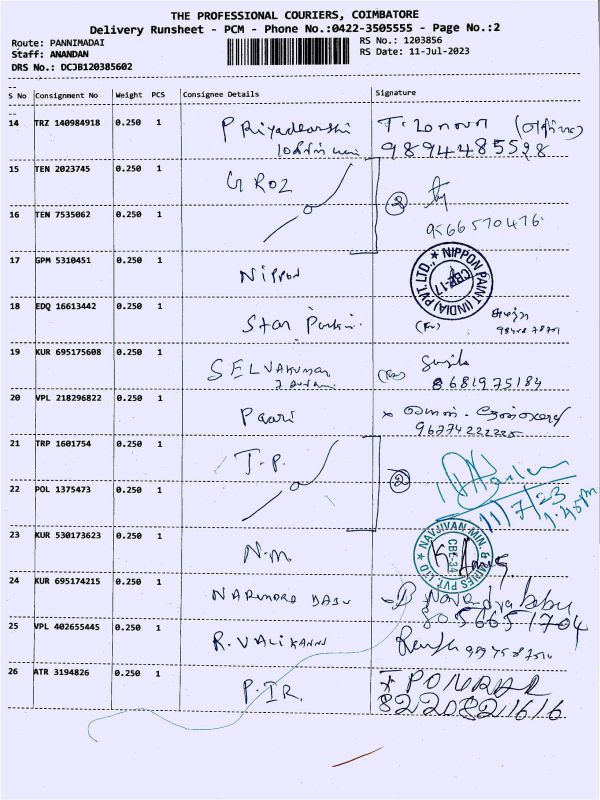 THE PROFESSIONAL COURIERS, COIMBATORE
Delivery Runsheet - PCM - Phone No.:0422-3505555 - Page No.:2
Route: PANNIMADAI
RS No.: 1203856
Staff: ANANDAN
RS Date: 11-Jul-2023
DRS No.: DCJB120385602
S No Consignment No Weight PCS Consignee Details Signature
14 TRZ 140984918 0.250 1 Priyadharshi
9894485598
15 TEN 2023745 0.250 1 GROZ
2
16 TEN 7535062 0.250 1
9566570476
17 GPM 5310451 0.250 1 Nippon
NIPPON PAINT (INDIA) PVT.LTD., ★ CBE-17
18 EDQ 16613442 0.250 1 Star
19 KUR 695175608 0.250 1 SELVAKUMAR
8681975184
20 VPL 218296822 0.250 1 Paari
21 TRP 1601754 0.250 1 T.P.
2
22 POL 1375473 0.250 1
11/7/23
1.45pm
23 KUR 530173623 0.250 1 N.M
24 KUR 695174215 0.250 1 NARENDRA BABU Narendra babu
8056651704
25 VPL 402655445 0.250 1 R.VALIKANNU
26 ATR 3194826 0.250 1 P.IR.
8220821616